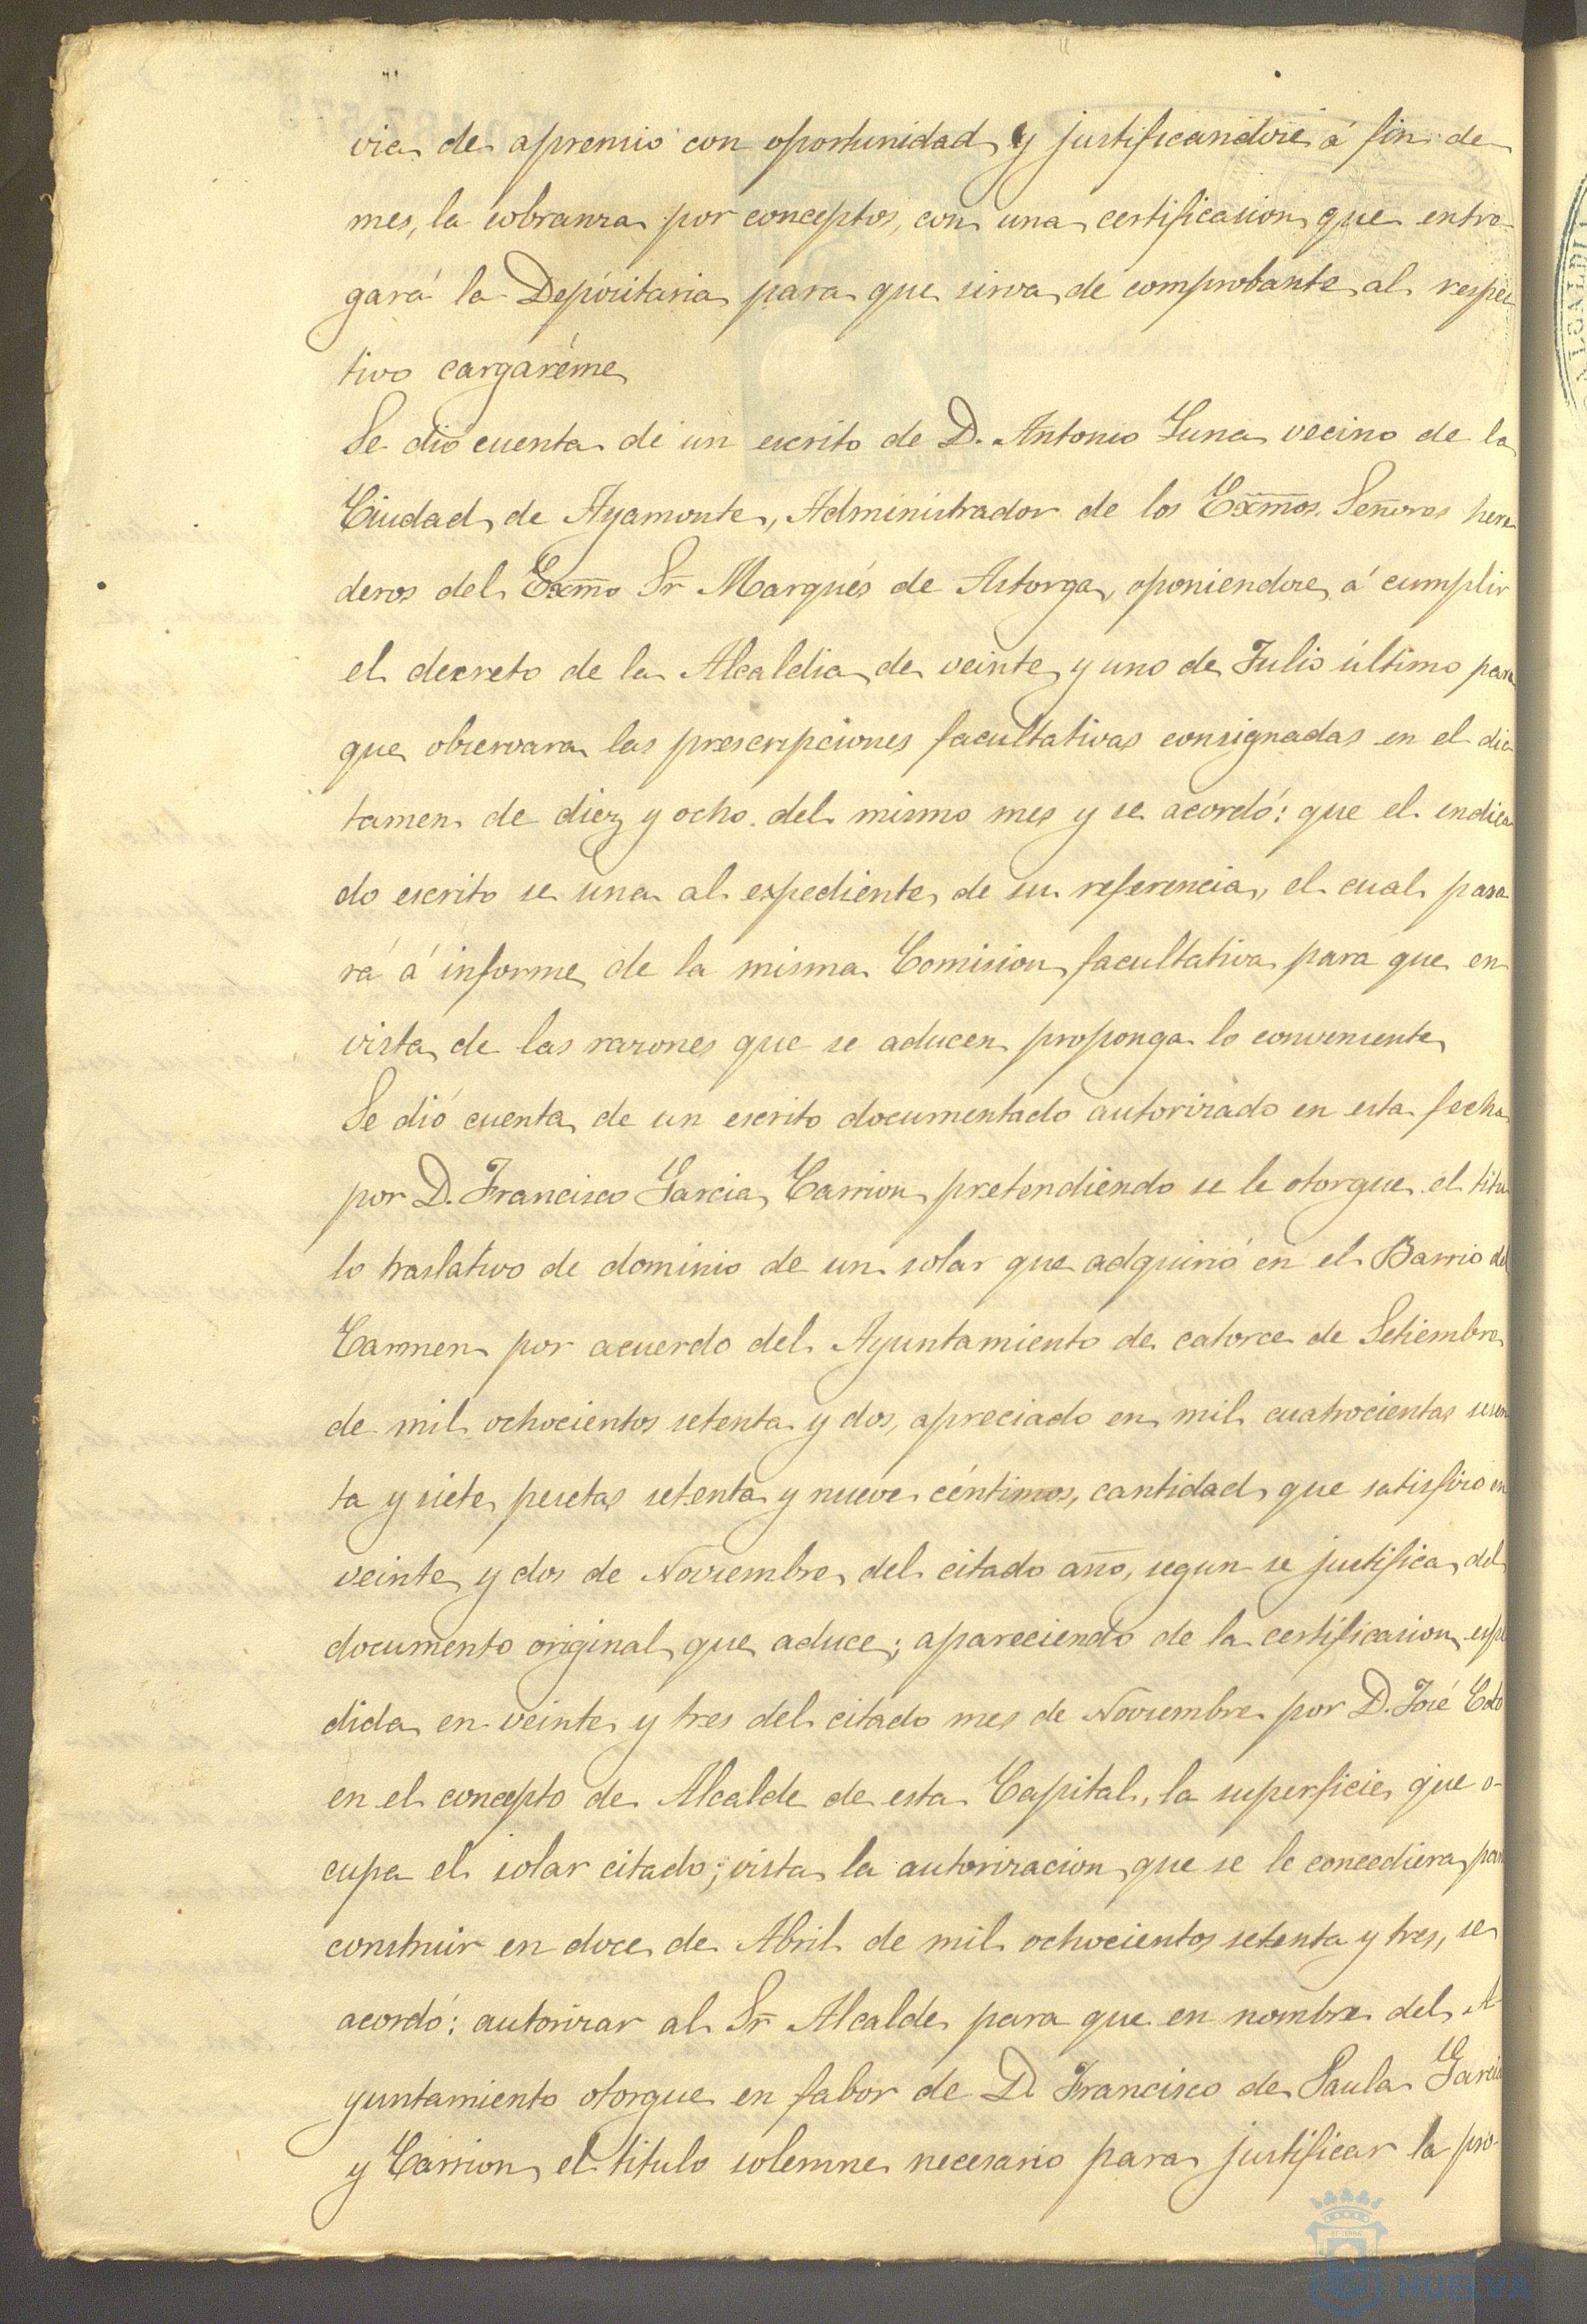 via de apremio con oportunidad y justificandose á fin de
mes, la cobranza por conceptos, con una certificasion que entre-
gará la Depósitaria para que sirva de comprobante al respec
tivo cargaréme
Se dió cuenta de un escrito de D. Antonio Luna vecino de la
Ciudad de Ayamonte, Administrador de los Exmos. Señores here
deros del Exmo Sr Marqués de Astorga, oponiendose á cumplir
el decreto de la Alcaldia de veinte y uno de Julio último para
que observara las prescripciones facultativas consignadas en el dic-
tamen de diez y ocho del mismo mes y se acordó: que el endica
do escrito se una al expediente de su referencia, el cual pasa
rá á informe de la misma Comision facultativa para que en
vista de las razones que se aducen proponga lo conveniente
Se dió cuenta de un escrito documentado autorizado en esta fecha
por D. Francisco Garcia Carrion pretendiendo se le otorgue el titu
lo traslativo de dominio de un solar que adquirió en el Barrio del
Carmen por acuerdo del Ayuntamiento de catorce de Setiembre
de mil ochocientos setenta y dos, apreciado en mil cuatrocientas sesen
ta y siete pesetas setenta y nueve céntimos, cantidad que satisfizo en
veinte y dos de Noviembre del citado año, segun se justifica del
documento original que aduce; apareciendo de la certificasion espe
dida en veinte y tres del citado mes de Noviembre por D. José Coto
en el concepto de Alcalde de esta Capital, la superficie que o-
cupa el solar citado; vista la autorizacion que se le concediera para
construir en doce de Abril de mil ochocientos setenta y tres, se
acordó: autorizar al Sr Alcalde para que en nombre del A-
yuntamiento otorgue en fabor de D. Francisco de Paula Garcia
y Carrion el titulo solemne necesario para justificar la pro-
HUELVA